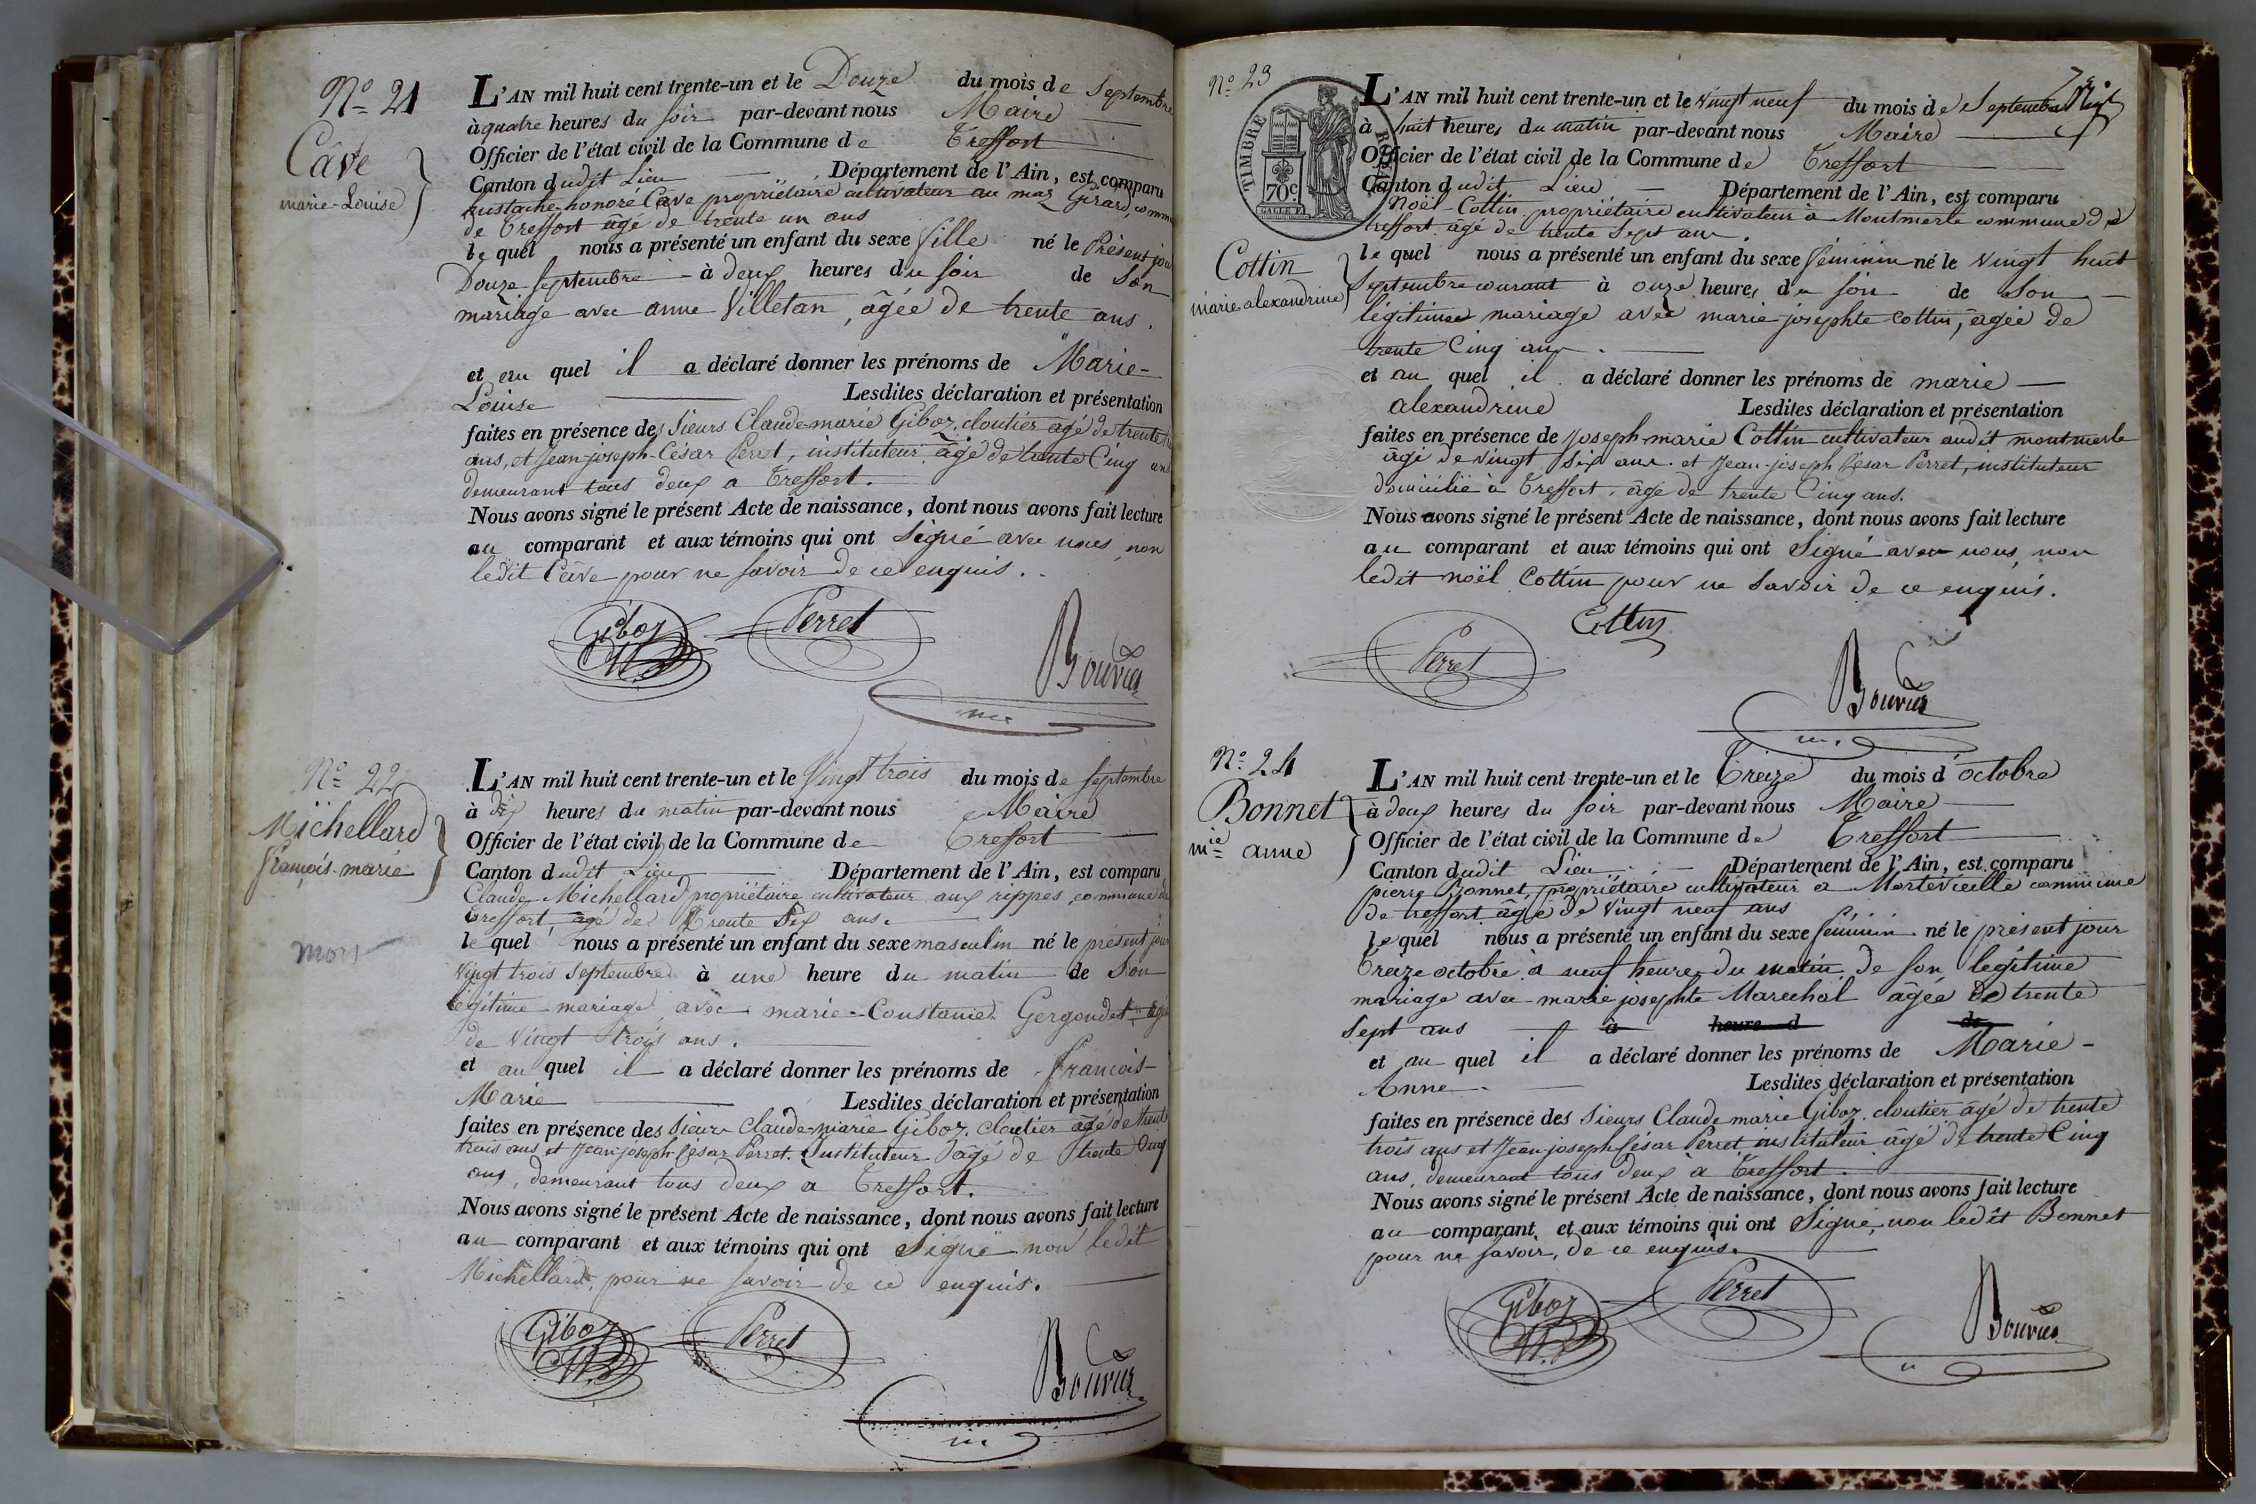 Nº 21
Câve
marie-Louise
L'AN mil huit cent trente-un et le Douze du mois de Septembre
à quatre heures du soir par-devant nous Maire
Officier de l'état civil de la Commune de Treffort
Canton dudit Lieu Département de l'Ain, est comparu
Eustache honoré Câve propriétaire cultivateur au maz Girard, comm
de Treffort âgé de trente un ans
le quel nous a présenté un enfant du sexe fille né le Présent jour
Douze Septembre à deux heures du soir de Son
mariage avec anne Villetan, âgée de trente ans.
et au quel il a déclaré donner les prénoms de Marie-
Louise Lesdites déclaration et présentation
faites en présence des Sieurs Claude-marie Giboz, cloutier âgé de trente
ans, et Jean-joseph-César Perret, instituteur âgé de trente Cinq ans
demeurant tous deux a Treffort.
Nous avons signé le présent Acte de naissance, dont nous avons fait lecture
au comparant et aux témoins qui ont Signé avec nous, non
ledit Câve pour ne savoir de ce enquis.
Giboz Perret Bouvier
Nº 22
Michellard
françois-marie
mort
L'AN mil huit cent trente-un et le Vingt trois du mois de Septembre
à dix heures du matin par-devant nous Maire
Officier de l'état civil de la Commune de Treffort
Canton dudit Lieu Département de l'Ain, est comparu
Claude Michellard propriétaire cultivateur aux rippes, commune de
Treffort âgé de Trente Dix ans.
le quel nous a présenté un enfant du sexe masculin né le présent jour
Vingt trois Septembre à une heure du matin de Son
légitime mariage avec marie-Constance Gergondet âgée
de Vingt trois ans.
et au quel il a déclaré donner les prénoms de françois-
Marie Lesdites déclaration et présentation
faites en présence des Sieurs Claude-marie Giboz, cloutier âgé de trente
trois ans et Jean-joseph César Perret. Instituteur âgé de trente Cinq
ans, demeurant tous deux a Treffort.
Nous avons signé le présent Acte de naissance, dont nous avons fait lecture
au comparant et aux témoins qui ont Signé non ledit
Michellard, pour ne savoir de ce enquis.
Giboz Perret Bouvier
Nº 23
TIMBRE ROYAL
70 c.
Cottin
marie alexandrine
L'AN mil huit cent trente-un et le Vingt neuf du mois de Septembre
à huit heures du matin par-devant nous Maire
Officier de l'état civil de la Commune de Treffort
Canton dudit Lieu Département de l'Ain, est comparu
Noël Cottin propriétaire cultivateur à Montmerle commune de
treffort âgé de trente Sept ans.
le quel nous a présenté un enfant du sexe féminin né le Vingt huit
Septembre courant à onze heures du soir de Son
légitime mariage avec marie josephte Cottin, âgée de
trente Cinq ans.
et au quel il a déclaré donner les prénoms de marie
alexandrine Lesdites déclaration et présentation
faites en présence de Joseph-marie Cottin cultivateur audit montmerle
âgé de vingt Six ans. et Jean-joseph César Perret, instituteur
domicilié à Treffort, âgé de trente Cinq ans.
Nous avons signé le présent Acte de naissance, dont nous avons fait lecture
au comparant et aux témoins qui ont Signé avec nous, non
ledit noël Cottin pour ne savoir de ce enquis.
Cottin
Perret Bouvier
Nº 24
Bonnet
mie anne
L'AN mil huit cent trente-un et le Treize du mois d'octobre
à deux heures du soir par-devant nous Maire
Officier de l'état civil de la Commune de Treffort
Canton dudit Lieu Département de l'Ain, est comparu
pierre Bonnet, propriétaire cultivateur a Mortevieille commune
de treffort âgé de Vingt neuf ans
le quel nous a présenté un enfant du sexe féminin né le présent jour
Treize octobre à neuf heures du matin de son légitime
mariage avec marie josephte Marechal âgée de trente
Sept ans à heure d de
et au quel il a déclaré donner les prénoms de Marie-
Anne Lesdites déclaration et présentation
faites en présence des Sieurs Claude marie Giboz cloutier âgé de trente
trois ans et Jean joseph César Perret instituteur âgé de trente Cinq
ans, demeurant tous deux à Treffort.
Nous avons signé le présent Acte de naissance, dont nous avons fait lecture
au comparant et aux témoins qui ont Signé, non ledit Bonnet
pour ne savoir, de ce enquis.
Giboz Perret Bouvier